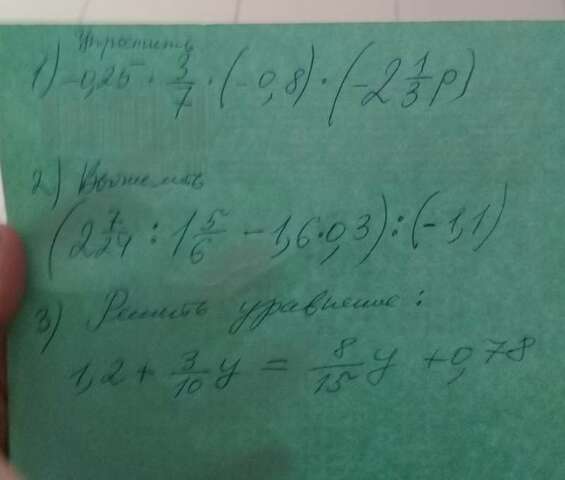 Упростить
1) -0,25 · 3/7 · (-0,8) · (-2 1/3 p)
2) Вычислить
(2 7/24 : 1 5/6 - 1,6·0,3) : (-1,1)
3) Решить уравнение:
1,2 + 3/10 y = 8/15 y + 0,78